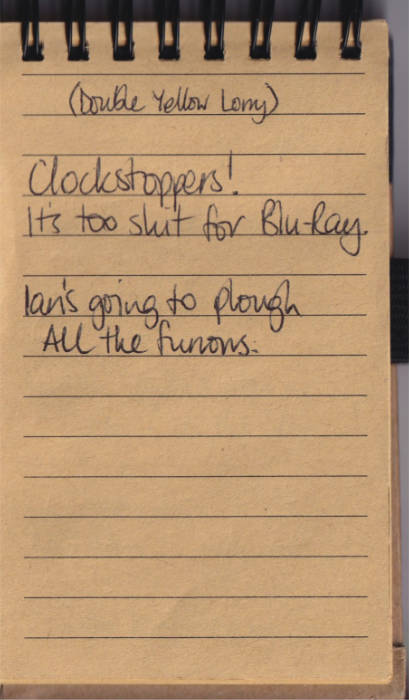 (Double Yellow Lorry)
Clockstoppers!
It's too shit for Blu-Ray.
Ian's going to plough
All the furrows.